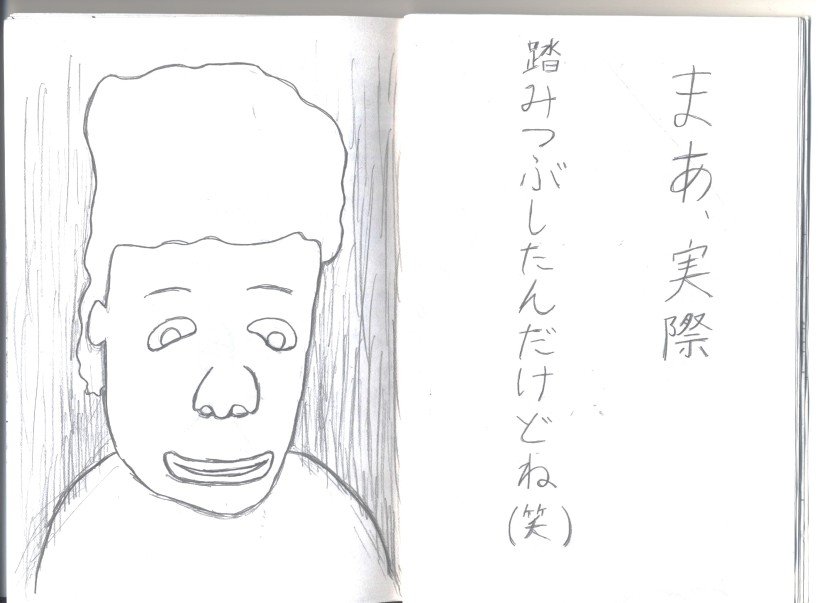 まあ、実際
踏みつぶしたんだけどね(笑)